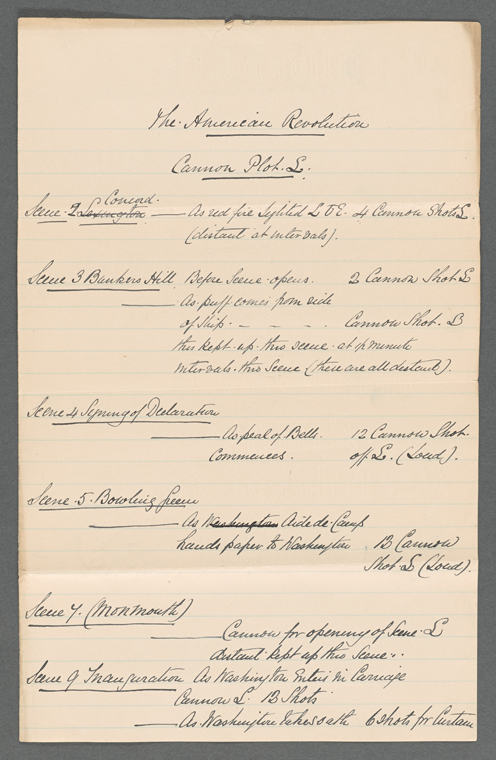 The American Revolution
Cannon Plot. L.
Concord.
Scene 2 Lexington — As red fire lighted L U E. 4 Cannon Shots L.
(distant at intervals).
Scene 3 Bunkers Hill Before Scene opens. 2 Cannon Shot L
— As puff comes from side
of Ship - - - - Cannon Shot. L
this kept up this scene at ½ minute
intervals this Scene (these are all distant).
Scene 4 Signing of Declaration
— As peal of Bells 12 Cannon Shot.
Commences. off L. (Loud).
Scene 5. Bowling Green
— As Washington Aide de Camp
hands paper to Washington 13 Cannon
Shot L (Loud).
Scene 7. (Monmouth)
— Cannon for opening of Scene L
distant kept up this Scene..
Scene 9 Inauguration As Washington Enters in Carriage
Cannon L. 13 Shots
— As Washington takes oath 6 shots for Curtain